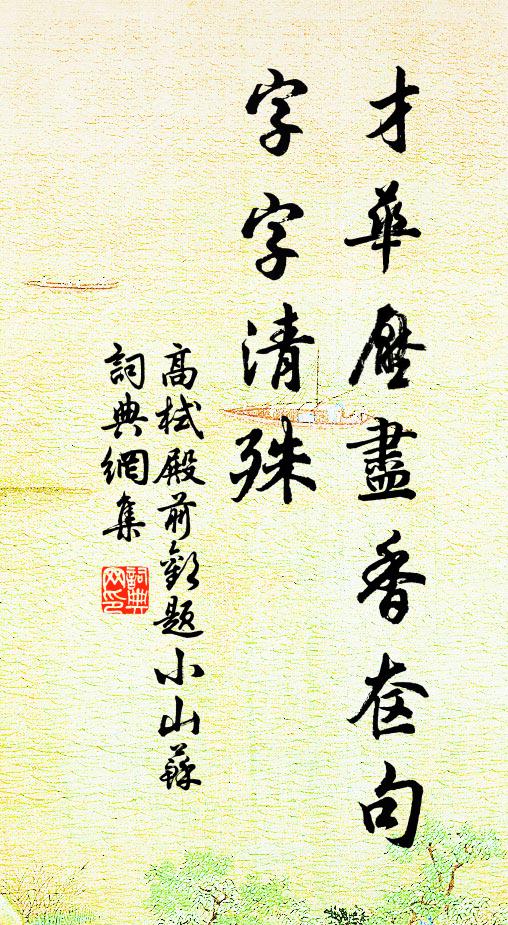 才華壓盡香奁句
字字清殊
高栻殿前歡題小山蘇
詞典網集
詞典網印